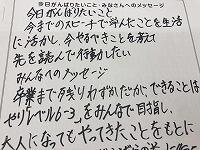 ※今日がんばりたいこと・みなさんへのメッセージ
今日がんばりたいこと
今までのスピーチで学んだことを生活
に活かし、今やるべきことを考え
先を読んで行動したい
みんなへのメッセージ
卒業まで残りわずかだが、できることは
やりレベル3をみんなで目指し、
大人になってもやってきたことをもとに